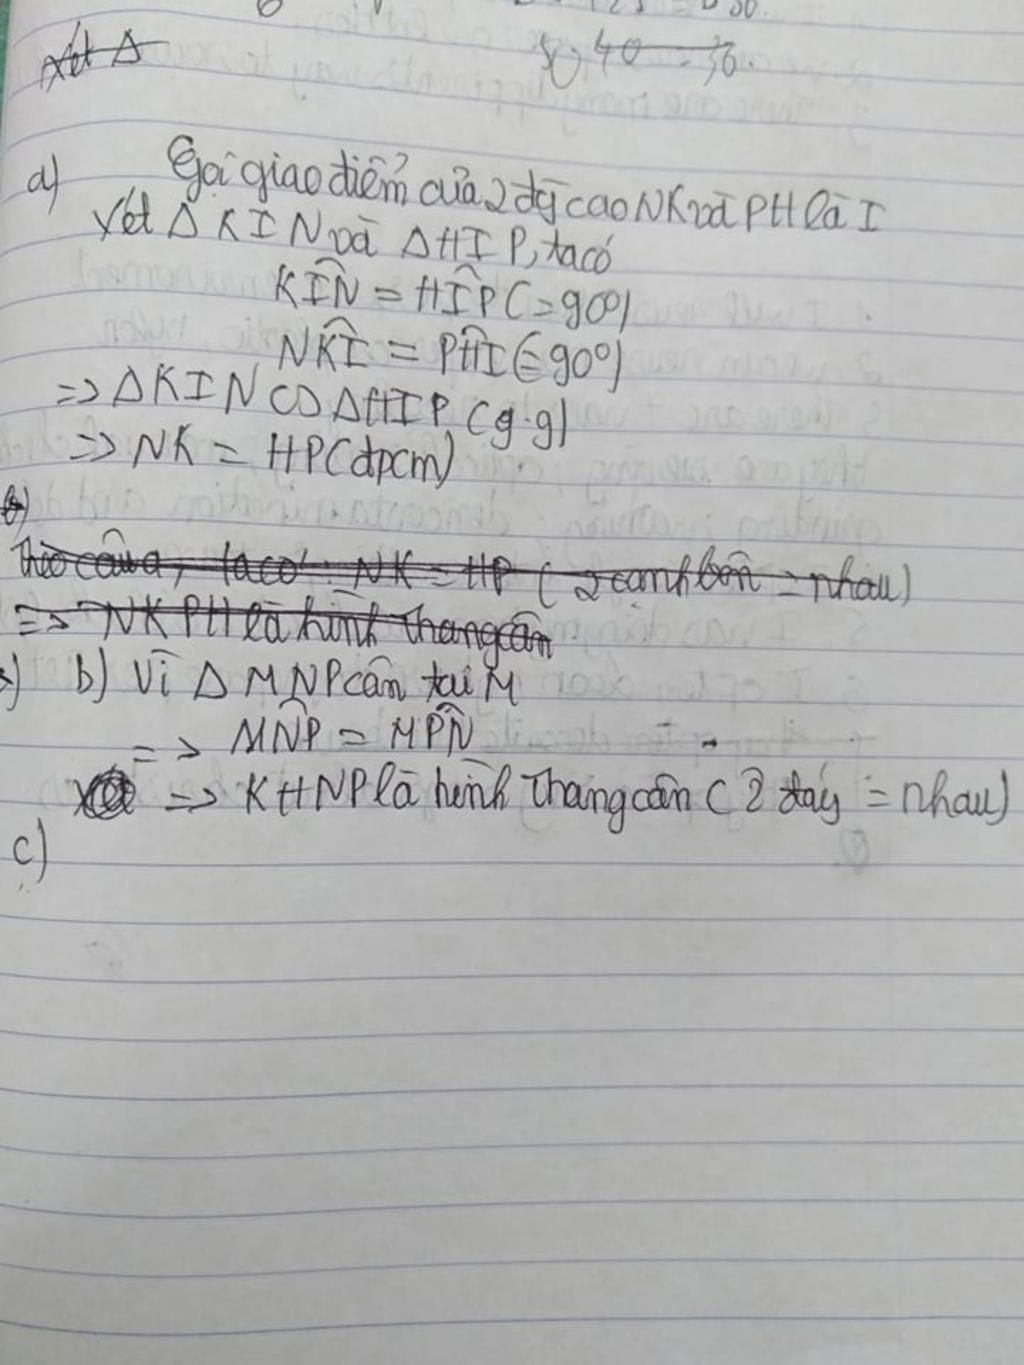 Xét Δ
40 = 36.
a) Gọi giao điểm của 2 đg cao NK và PH là I
Xét Δ KIN và Δ HIP, ta có
KIN = HIP (=90°)
NKI = PHI (=90°)
=> ΔKIN ∽ ΔHIP (g.g)
=> NK = HP (đpcm)
b)
Theo câu a, ta có: NK = HP (2 cạnh bên = nhau)
=> NKPH là hình thang cân
b) Vì Δ MNP cân tại M
=> MNP = MPN
=> KHNP là hình thang cân (2 đáy = nhau)
c)